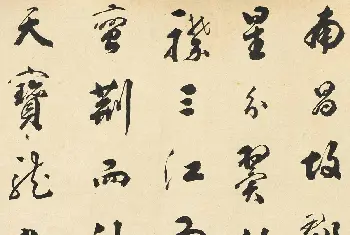 南昌故郡
星分翼
襟三江而
蠻荊而
天寶龍